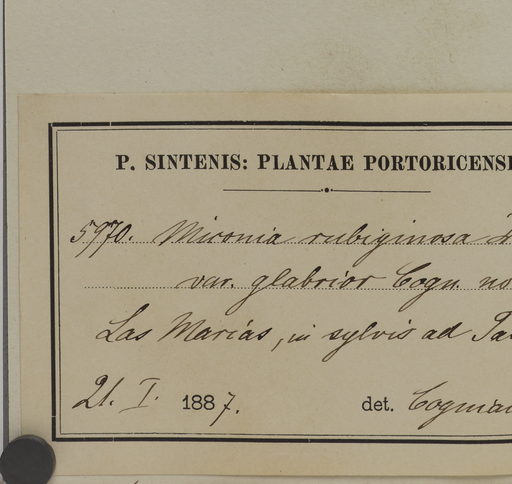 P. SINTENIS: PLANTAE PORTORICENS
5970. Miconia rubiginosa
var. glabrior Cogn.
Las Marías, in sylvis ad
21. I. 1887.
det. Cogniau